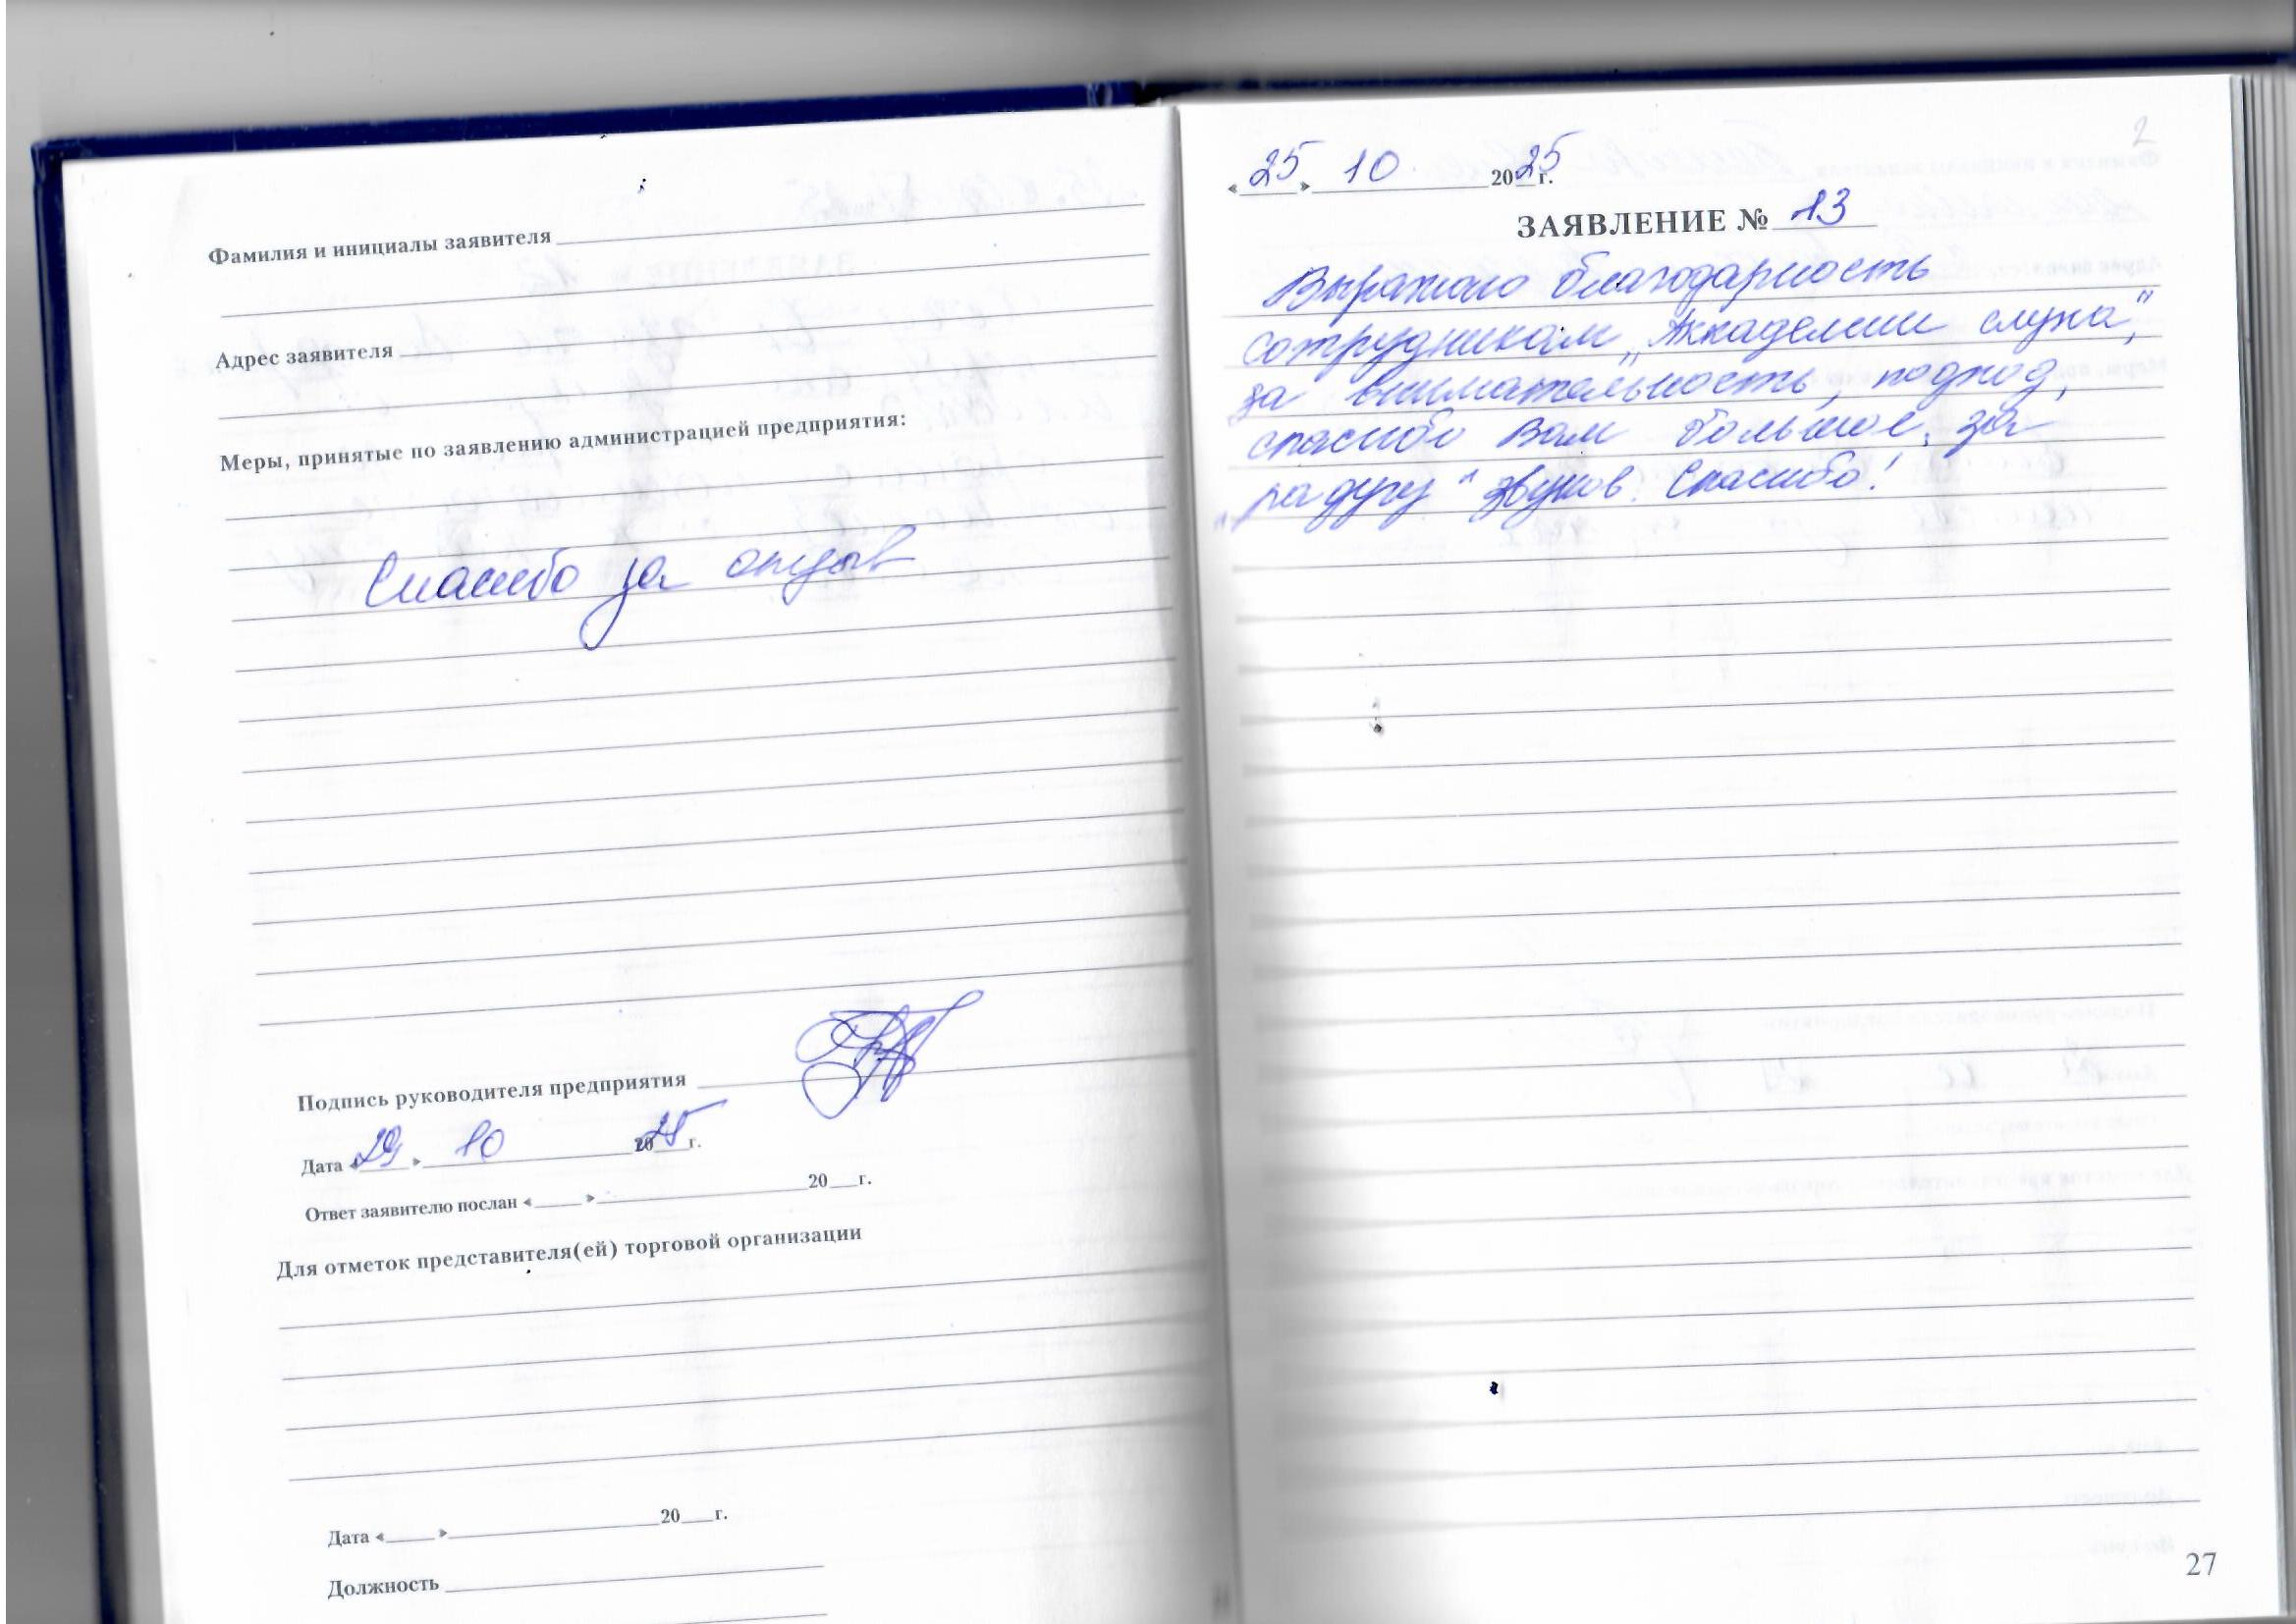 Фамилия и инициалы заявителя
Адрес заявителя
Меры, принятые по заявлению администрацией предприятия:
Спасибо за отзыв
Подпись руководителя предприятия
Дата «29» 10 2025 г.
Ответ заявителю послан «    » 20   г.
Для отметок представителя(ей) торговой организации
Дата «    » 20   г.
Должность
2
«25» 10 2025 г.
ЗАЯВЛЕНИЕ № 13
Выражаю благодарность
сотрудникам „Аккадемии слуха",
за внимательность, подход,
спасибо Вам большое, за
„радугу" звуков. Спасибо!
27